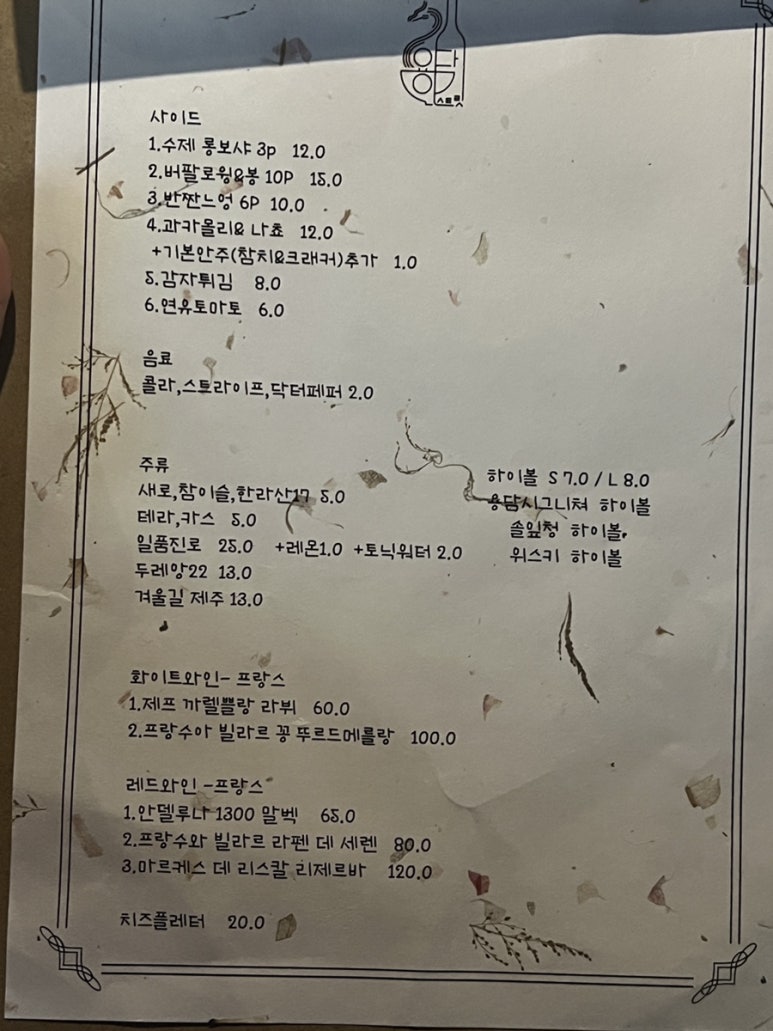 용담
스트릿
사이드
1.수제 롱보샤 3p 12.0
2.버팔로윙&봉 10P 15.0
3.반짠느엉 6P 10.0
4.과카몰리& 나쵸 12.0
+기본안주(참치&크래커)추가 1.0
5.감자튀김 8.0
6.연유토마토 6.0
음료
콜라,스트라이프,닥터페퍼 2.0
주류
새로,참이슬,한라산17 5.0
테라,카스 5.0
일품진로 25.0 +레몬1.0 +토닉워터 2.0
두레앙22 13.0
겨울길 제주 13.0
하이볼 S 7.0 / L 8.0
용담시그니쳐 하이볼
솔잎청 하이볼,
위스키 하이볼
화이트와인- 프랑스
1.제프 까렐쁠랑 라뷔 60.0
2.프랑수아 빌라르 꽁 뚜르드메를랑 100.0
레드와인 -프랑스
1.안델루나 1300 말벡 65.0
2.프랑수와 빌라르 라펜 데 세렌 80.0
3.마르케스 데 리스칼 리제르바 120.0
치즈플레터 20.0